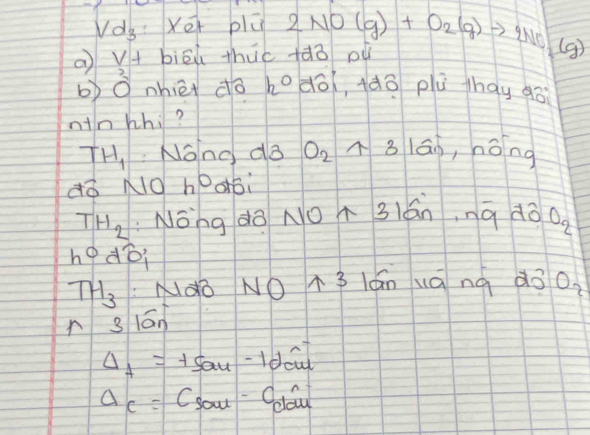 Vd₃: Xét pứ 2NO(g) + O₂(g) → 2NO₂(g)
a) Vt biểu thức tđộ pứ
b) Ở nhiệt độ hº đổi, tđộ pứ thay đổi
ntn khi?
TH₁: Nồng độ O₂ ↑ 3 lần, nồng
độ NO hº đổi
TH₂: Nồng độ NO ↑ 3 lần, ng̃ độ O₂
hº đổi
TH₃: Nđộ NO ↑ 3 lần và ng̃ độ O₂
↑ 3 lần
Δt = tsau - tđầu
Δc = Csau - Cđầu